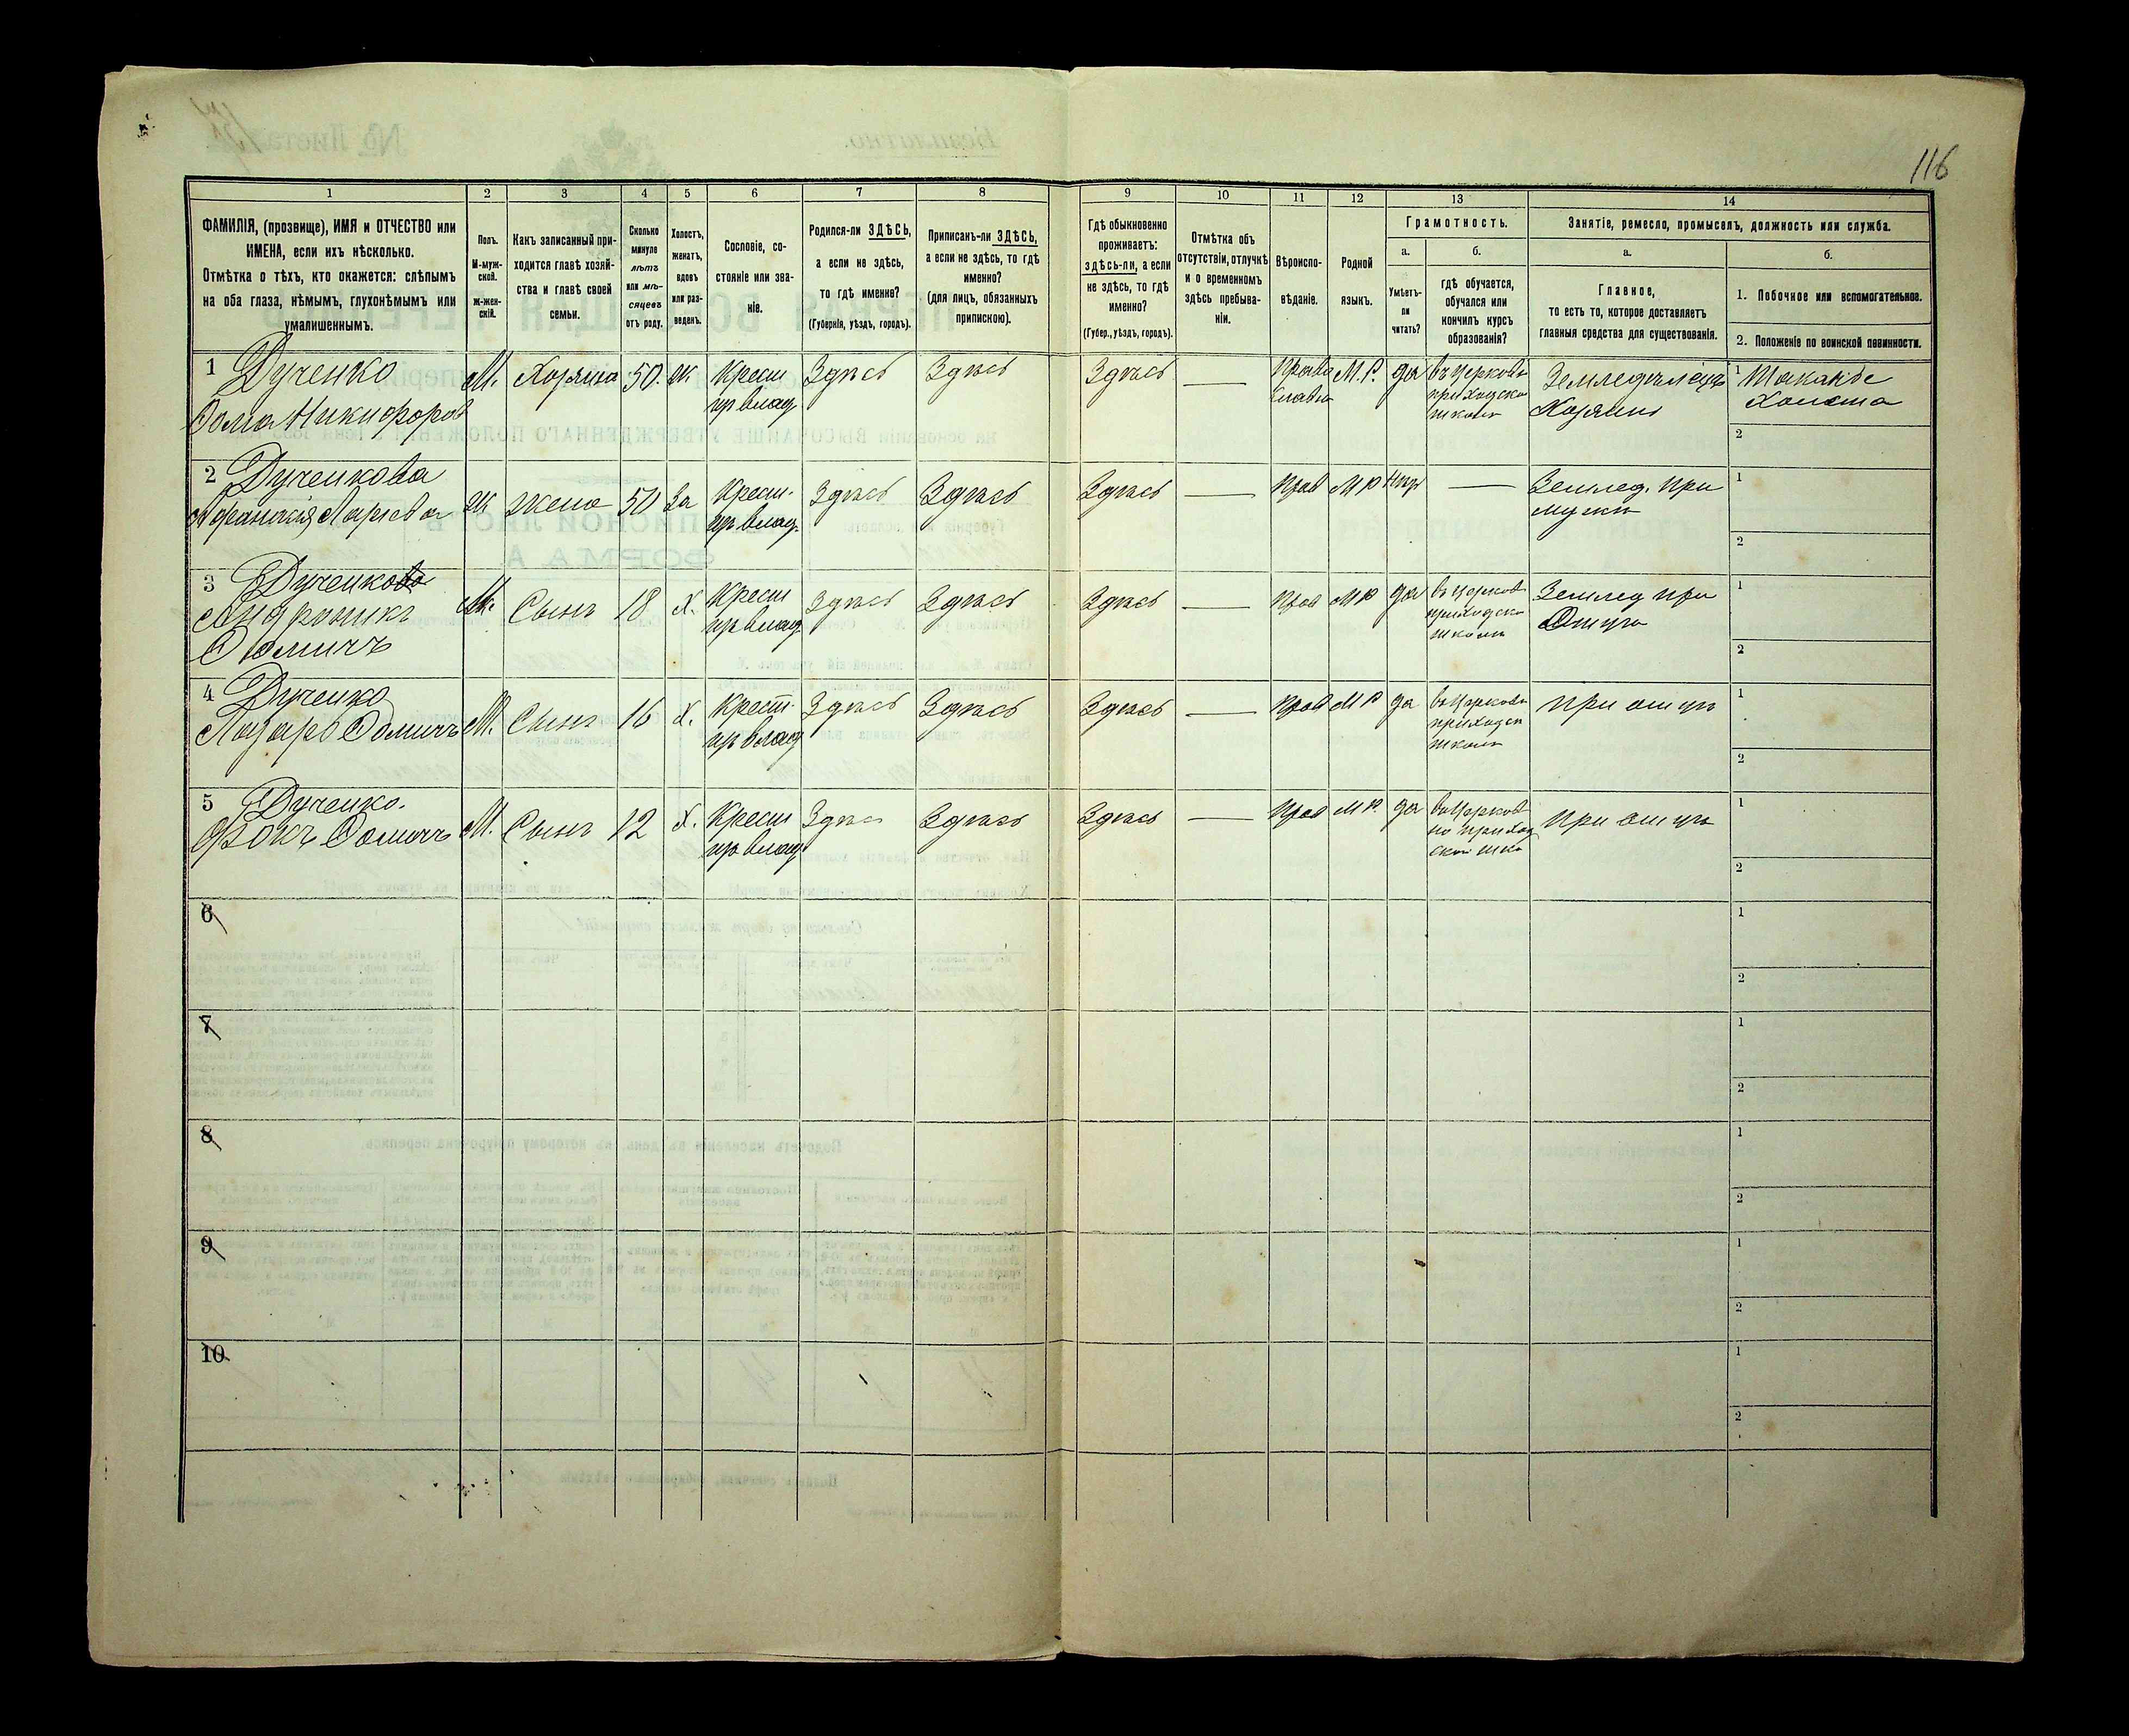 116
1 2 3 4 5 6 7 8 9 10 11 12 13 14
ФАМИЛІЯ, (прозвище), ИМЯ и ОТЧЕСТВО или
ИМЕНА, если ихъ нѣсколько.
Отмѣтка о тѣхъ, кто окажется: слѣпымъ
на оба глаза, нѣмымъ, глухонѣмымъ или
умалишеннымъ.
Полъ.
М-муж-
ской.
ж-жен-
скій.
Какъ записанный при-
ходится главѣ хозяй-
ства и главѣ своей
семьи.
Сколько
минуло
лѣтъ
или мѣ-
сяцевъ
отъ роду.
Холостъ,
женатъ,
вдовъ
или раз-
веденъ.
Сословіе, со-
стояніе или зва-
ніе.
Родился-ли ЗДѢСЬ,
а если не здѣсь,
то гдѣ именно?
(Губернія, уѣздъ, городъ).
Приписанъ-ли ЗДѢСЬ,
а если не здѣсь, то гдѣ
именно?
(для лицъ, обязанныхъ
припискою).
Гдѣ обыкновенно
проживаетъ:
здѣсь-ли, а если
не здѣсь, то гдѣ
именно?
(Губер., уѣздъ, городъ).
Отмѣтка объ
отсутствіи, отлучкѣ
и о временномъ
здѣсь пребыва-
ніи.
Вѣроиспо-
вѣданіе.
Родной
языкъ.
Грамотность.
а.
Умѣетъ-
ли
читать?
б.
гдѣ обучается,
обучался или
кончилъ курсъ
образованія?
Занятіе, ремесло, промыселъ, должность или служба.
а.
Главное,
то есть то, которое доставляетъ
главныя средства для существованія.
б.
1. Побочное или вспомогательное.
2. Положеніе по воинской повинности.
1 Дученко
Фома Никифоров
М. Хозяинъ 50. ж Крест
ир влад Здѣсь Здѣсь Здѣсь — Право
славн М.Р. да въ Церковн
приходско
школѣ Земледѣлецъ
Хозяинъ 1 Тканье
Холста
2
2 Дученкова
Ж жена 50 За Крест.
ир влад. Здѣсь Здѣсь Здѣсь — Прав М Р — Землед. при
мужѣ 1
2
3 Дученко
Андроникъ
Фомичъ
М. Сынъ 18 Х. Крест
ир влад. Здѣсь Здѣсь Здѣсь — Прав М Р да въ Церков
приходско
школѣ Землед при
Отцѣ 1
2
4 Дученко
Лазарь Фомичъ М. Сынъ 16 Х. Крест.
ир влад Здѣсь Здѣсь Здѣсь — Прав М Р да въ Церковн
приходск
школѣ при отцѣ 1
2
5 Дученко.
Фомичъ М. Сынъ 12 Х. Крест
ир влад Здѣс Здѣсь Здѣсь — Прав М Р. да въ Церков
но приход
ской шко при отцѣ 1
2
6 1
2
7 1
2
8 1
2
9 1
2
10 1
2